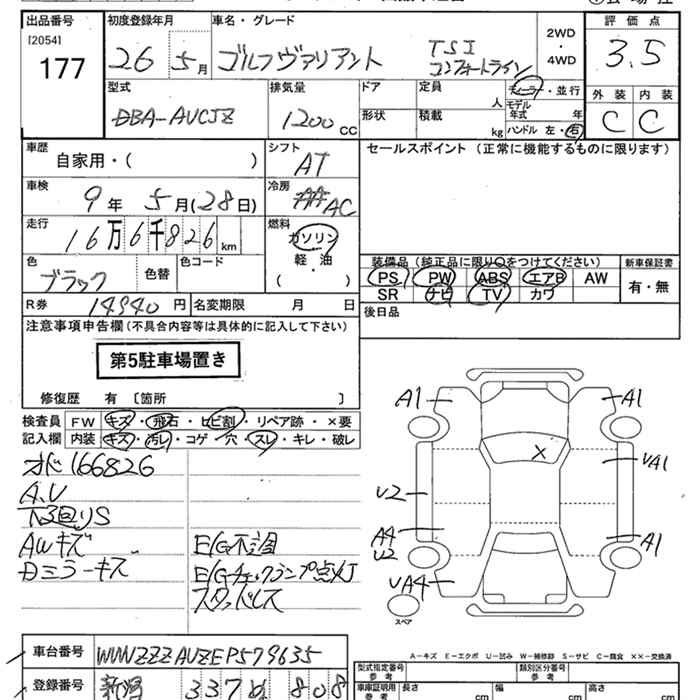 出品番号 初度登録年月 車名・グレード 2WD・4WD 評価点
[2054]
177 26 5月 ゴルフヴァリアント TSI コンフォートライン 3.5
型式 排気量 ドア 定員 人 ディーラー・並行 外装 内装
DBA-AUCJZ 1200 CC 形状 積載 kg モデル年式 年 C C
ハンドル 左・右
車歴 シフト セールスポイント(正常に機能するものに限ります)
自家用・( ) AT
車検 冷房
9年 5月(28日) AC
走行 燃料
16万6千826km ガソリン
軽・油
( )
色 色替 色コード 装備品(純正品に限り○をつけてください) 新車保証書
ブラック PS PW ABS エアB AW 有・無
SR ナビ TV カワ
R券 14940円 名変期限 月 日 後日品
注意事項申告欄(不具合内容等は具体的に記入して下さい)
第5駐車場置き
修復歴 有〔箇所 〕
検査員 FW キズ・飛石・ヒビ割・リペア跡・×要
記入欄 内装 キズ・汚レ・コゲ・穴・スレ・キレ・破レ
オド166826
A.U
下3回りS
AWキズ E/G不調
Dミラーキズ E/Gチェックランプ点灯
スタッドレス
A1 A1
X
UA1
U2
A4 A1
U2
UA4
スペア
A-キズ E-エクボ U-凹み W-補修跡 S-サビ C-腐食 ××-交換済
車台番号 WVWZZZAUZEP579635
型式指定番号 参考 類別区分番号 参考
登録番号 新潟 337 808
車庫証明用 参考 長さ cm 幅 cm 高さ cm